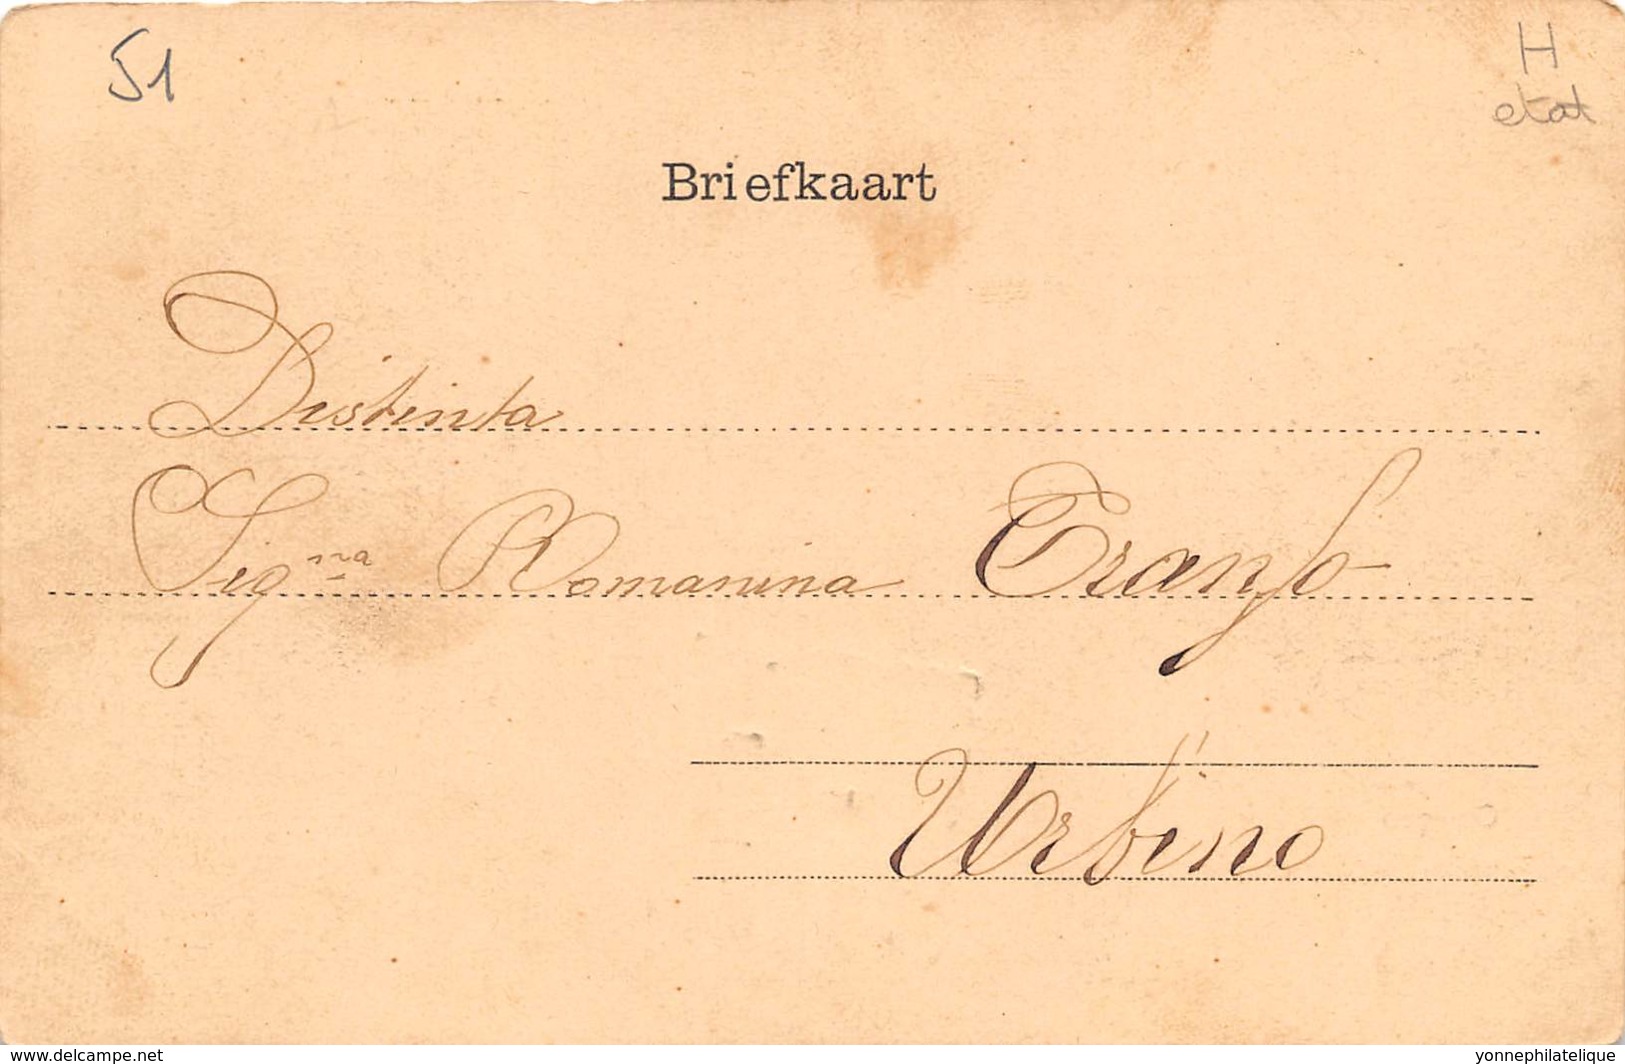 51
H
etat
Briefkaart
Distinta
Sig.na Romanina
Urbino
www.delcampe.net
yonnephilatelique